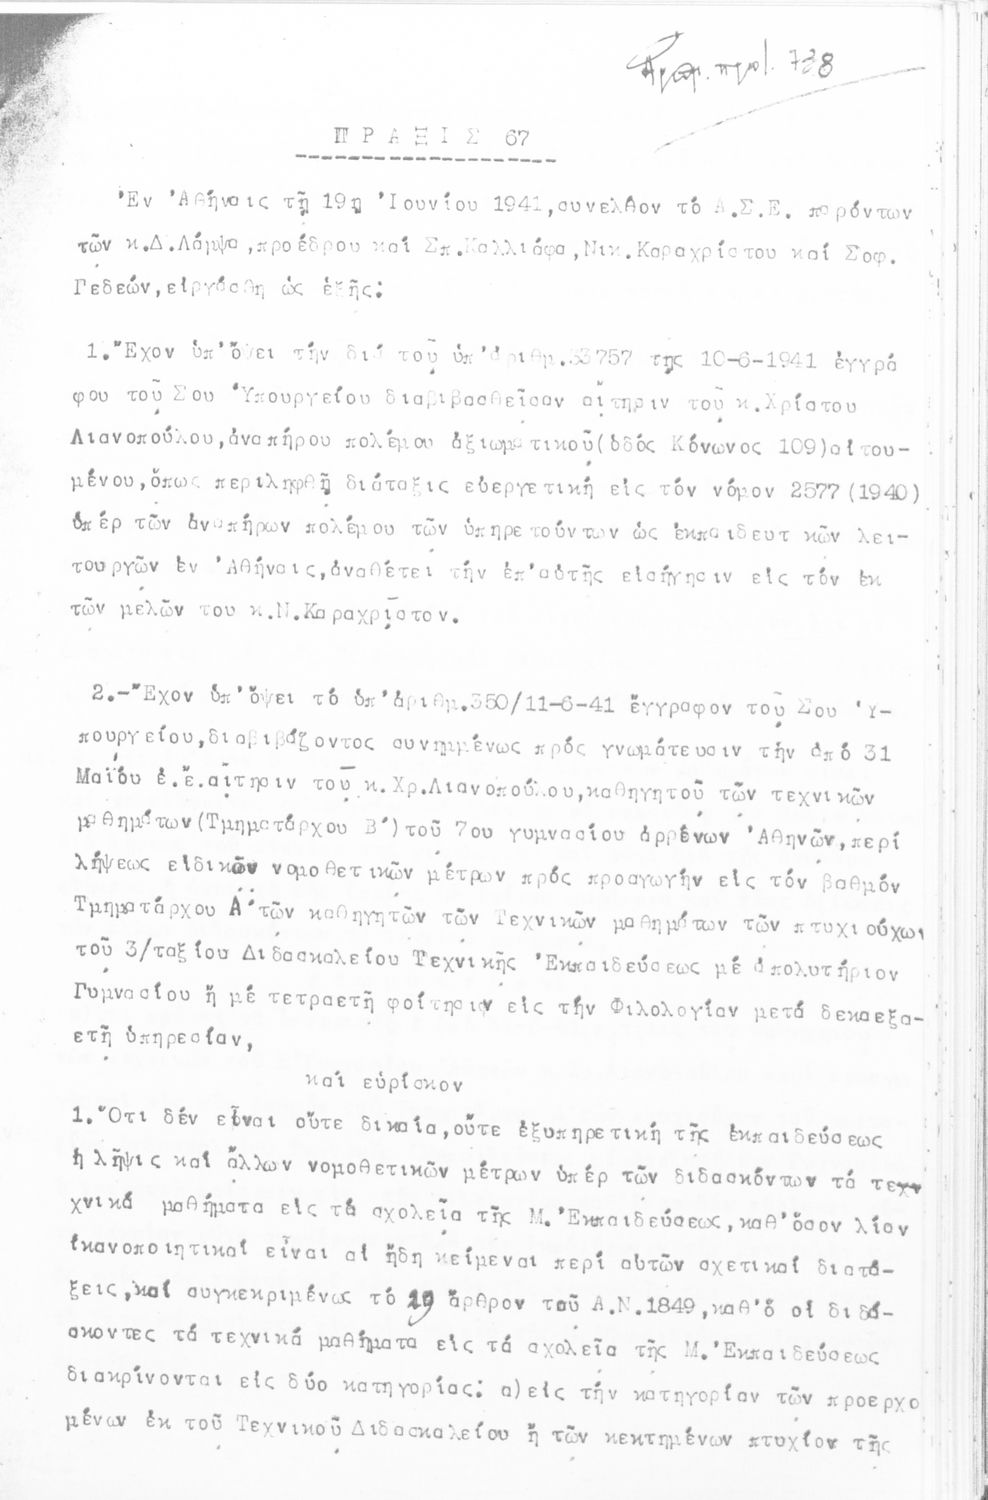 Αριθ. πρωτ. 738
ΠΡΑΞΙΣ 67
Ἐν Ἀθήναις τῇ 19ῃ Ἰουνίου 1941,συνελθόν τό Α.Σ.Ε. παρόντων
τῶν κ.Δ.Λάμψα,προέδρου καί Σπ.Καλλιάφα,Νικ.Καραχρίστου καί Σοφ.
Γεδεών,εἰργάσθη ὡς ἑξῆς:
1.Ἔχον ὑπ'ὄψει τήν διά τοῦ ὑπ'ἀριθμ.33757 της 10-6-1941 ἐγγρά
φου τοῦ Σου Ὑπουργείου διαβιβασθεῖσαν αἴτησιν τοῦ κ.Χρίστου
Λιανοπούλου,ἀναπήρου πολέμου ἀξιωματικοῦ(ὁδός Κόνωνος 109)αἰτου-
μένου,ὅπως περιληφθῇ διάταξις εὐεργετική εἰς τόν νόμον 2577(1940)
ὑπέρ τῶν ἀναπήρων πολέμου τῶν ὑπηρετούντων ὡς ἐκπαιδευτ κῶν λει-
τουργῶν ἐν Ἀθήναις,ἀναθέτει τήν ἐπ'αὐτῆς εἰσήγησιν εἰς τόν ἐκ
τῶν μελῶν του κ.Ν.Καραχρῖστον.
2.-Ἔχον ὑπ'ὄψει τό ὑπ'ἀριθμ.350/11-6-41 ἔγγραφον τοῦ Σου Ὑ-
πουργείου,διαβιβάζοντος συνημμένως πρός γνωμάτευσιν τήν ἀπό 31
Μαΐου ἐ.ἔ.αἴτησιν τοῦ κ.Χρ.Λιανοπούλου,καθηγητοῦ τῶν τεχνικῶν
μαθημάτων(Τμηματάρχου Β')τοῦ 7ου γυμνασίου ἀρρένων Ἀθηνῶν,περί
λήψεως εἰδικῶν νομοθετικῶν μέτρων πρός προαγωγήν εἰς τόν βαθμόν
Τμηματάρχου Α'τῶν καθηγητῶν τῶν Τεχνικῶν μαθημάτων τῶν πτυχιούχων
τοῦ 3/ταξίου Διδασκαλείου Τεχνικῆς Ἐκπαιδεύσεως μέ ἀπολυτήριον
Γυμνασίου ἤ μέ τετραετῆ φοίτησιν εἰς τήν Φιλολογίαν μετά δεκαεξα-
ετῆ ὑπηρεσίαν,
καί εὑρίσκον
1.Ὅτι δέν εἶναι οὔτε δικαία,οὔτε ἐξυπηρετική τῆς ἐκπαιδεύσεως
ἡ λῆψις καί ἄλλων νομοθετικῶν μέτρων ὑπέρ τῶν διδασκόντων τά τεχν
χνικά μαθήματα εἰς τά σχολεῖα τῆς Μ.Ἐκπαιδεύσεως,καθ'ὅσον λίαν
ἱκανοποιητικαί εἶναι αἱ ἤδη κείμεναι περί αὐτῶν σχετικαί διατά-
ξεις,καί συγκεκριμένως τό 19 ἄρθρον τοῦ Α.Ν.1849,καθ'ὅ οἱ διδά-
σκοντες τά τεχνικά μαθήματα εἰς τά σχολεῖα τῆς Μ.Ἐκπαιδεύσεως
διακρίνονται εἰς δύο κατηγορίας: α)εἰς τήν κατηγορίαν τῶν προερχο
μένων ἐκ τοῦ Τεχνικοῦ Διδασκαλείου ἤ τῶν κεκτημένων πτυχίον τῆς